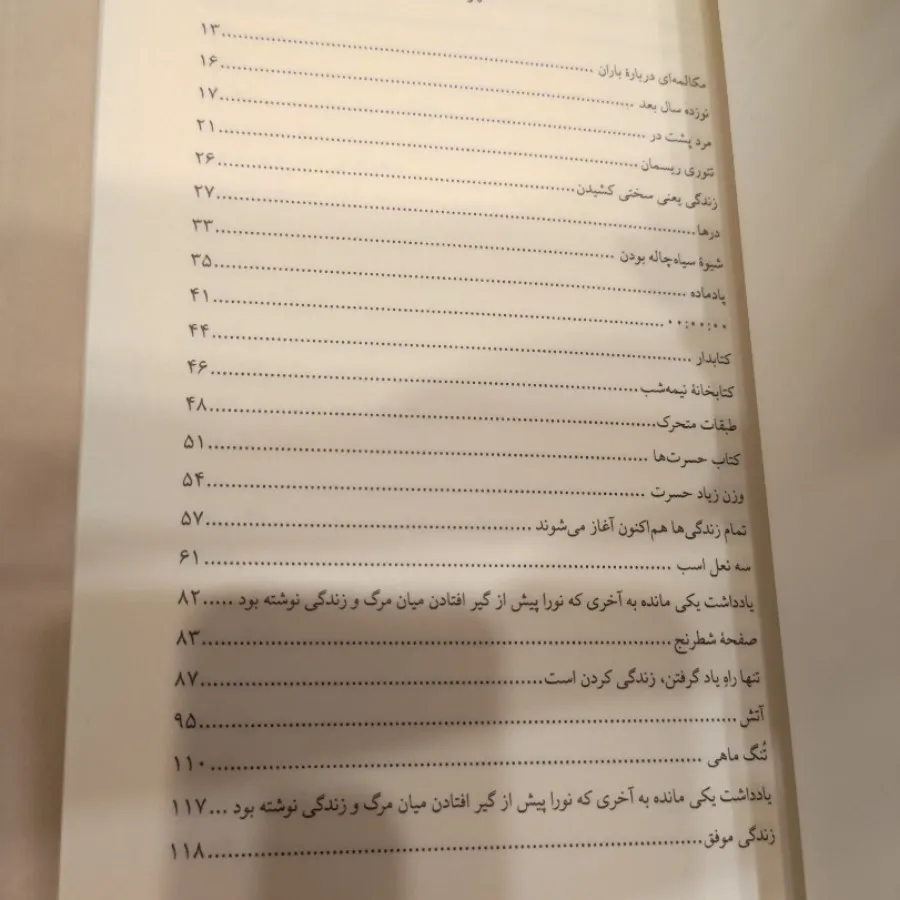 مکالمه‌ای دربارهٔ باران ........ ۱۳
نوزده سال بعد ........ ۱۶
مرد پشت در ........ ۱۷
تئوری ریسمان ........ ۲۱
زندگی یعنی سختی کشیدن ........ ۲۶
درها ........ ۲۷
شیوهٔ سیاه‌چاله بودن ........ ۳۳
پادماده ........ ۳۵
۰۰:۰۰:۰۰ ........ ۴۱
کتابدار ........ ۴۴
کتابخانهٔ نیمه‌شب ........ ۴۶
طبقات متحرک ........ ۴۸
کتاب حسرت‌ها ........ ۵۱
وزن زیاد حسرت ........ ۵۴
تمام زندگی‌ها هم‌اکنون آغاز می‌شوند ........ ۵۷
سه نعل اسب ........ ۶۱
یادداشت یکی مانده به آخری که نورا پیش از گیر افتادن میان مرگ و زندگی نوشته بود ..... ۸۲
صفحهٔ شطرنج ........ ۸۳
تنها راهِ یاد گرفتن، زندگی کردن است ........ ۸۷
آتش ........ ۹۵
تُنگ ماهی ........ ۱۱۰
یادداشت یکی مانده به آخری که نورا پیش از گیر افتادن میان مرگ و زندگی نوشته بود ... ۱۱۷
زندگی موفق ........ ۱۱۸